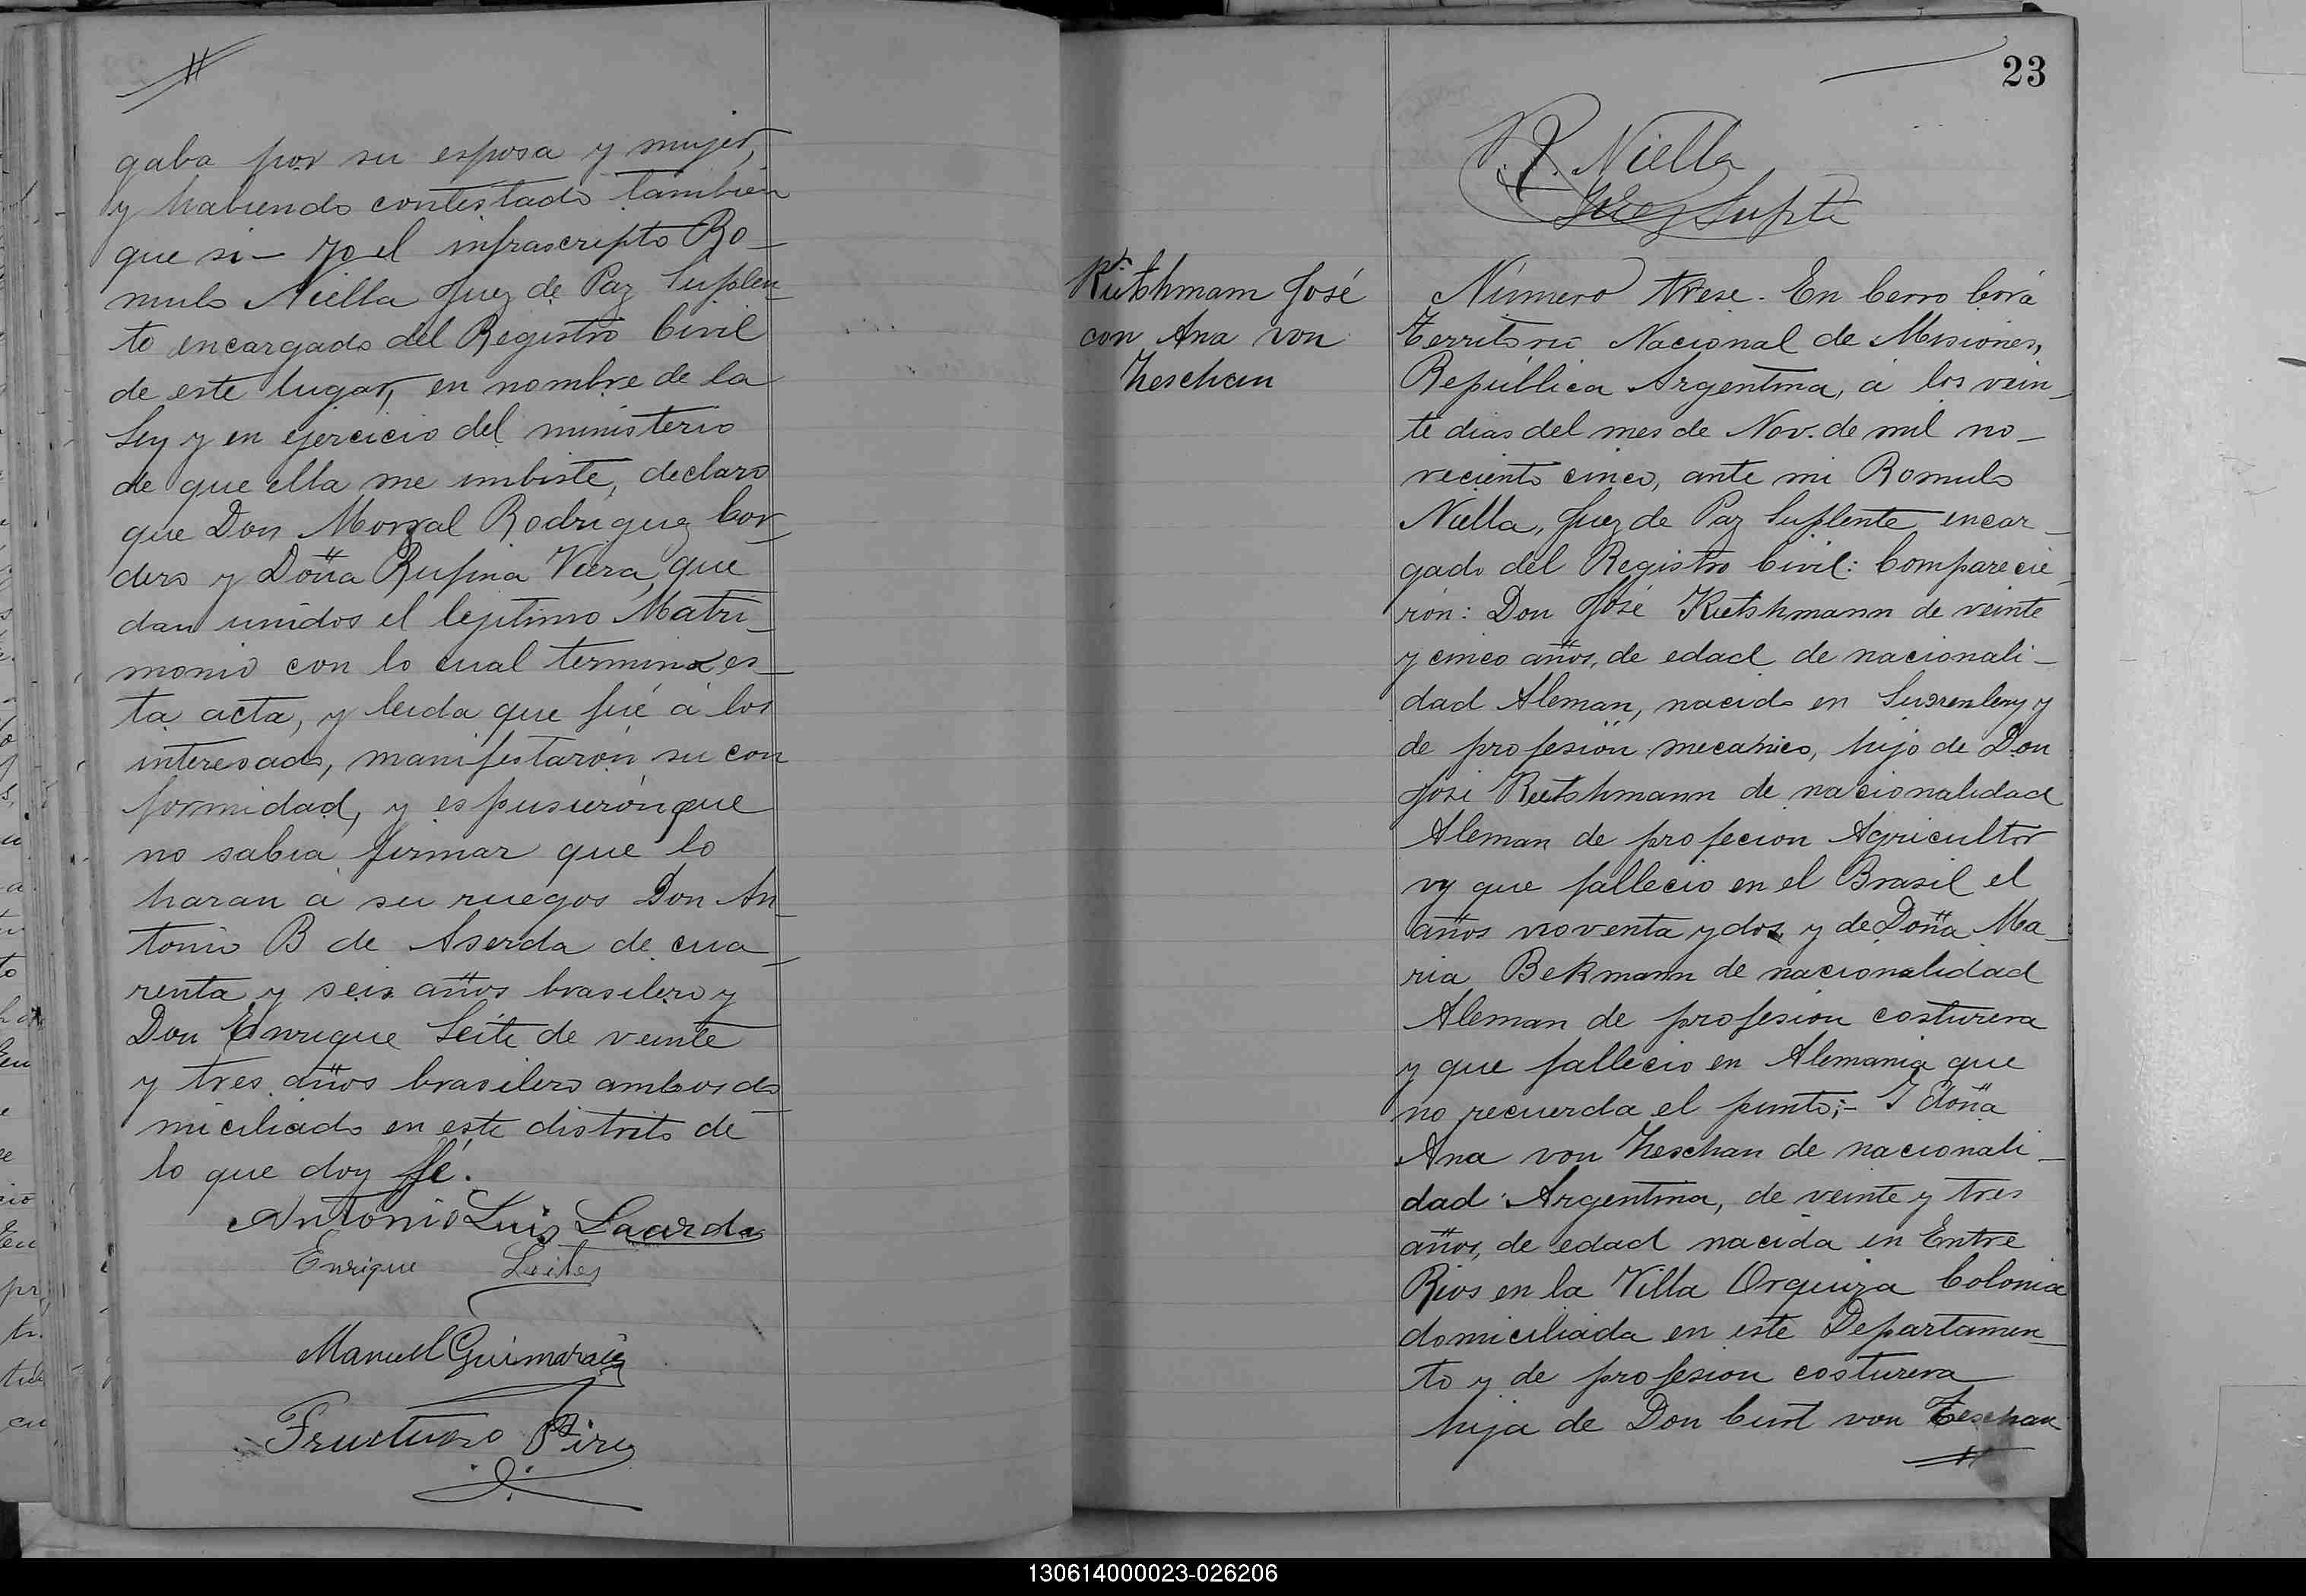 gaba por su esposa y mujer,
y habiendo contestado también
que si – yo el infrascripto Ro_
mulo Niella Juez de Paz Suplen_
te encargado del Registro Civil
de este lugar, en nombre de la
Ley y en ejercicio del ministerio
de que ella me imbiste, declaro
que Don Morzal Rodriguez Cor_
dero y Doña Rufina Viera, que
dan unidos el lejitimo Matri_
monio con lo cual termina es_
ta acta, y leida que fué á los
interesado, manifestarón su con
formidad, y espusierón que
no sabia firmar que lo
haran a su ruegos Don An_
tonio B de Aserda de cua_
renta y seis años brasilero y
Don Enrique Leite de veinte
y tres años brasilero ambos do_
miciliado en este distrito de
lo que doy fé.
Antonio Luis
Enrique Leites
Manuel Guimaraes
Fructuoso Pires
23
R. Niella
Juez Suplte
Kutshmam José
con Ana von
Zeschan
Número trese. En Cerro Corá
Territorio Nacional de Misiones,
República Argentina, á los vein_
te dias del mes de Nov. de mil no_
veciento cinco, ante mi Romulo
Niella, Juez de Paz Suplente encar_
gado del Registro Civil: Comparecie_
rón: Don José Kutshmann de veinte
y cinco años, de edad de nacionali_
dad Aleman, nacido en y
de profesión mecanico, hijo de Don
José Kutshmann de nacionalidad
Aleman de profecion Agricultor
y que fallecio en el Brasil el
años noventa y dos y de Doña Ma_
ria Bekmann de nacionalidad
Aleman de profesion costurera
y que fallecio en Alemania que
no recuerda el punto;– I doña
Ana von Zeschan de nacionali_
dad Argentina, de veinte y tres
años, de edad nacida en Entre
Rios en la Villa Orquiza Colonia
domiciliada en este Departamen_
to y de profesion costurera
hija de Don Curt von Zeschan
130614000023-026206